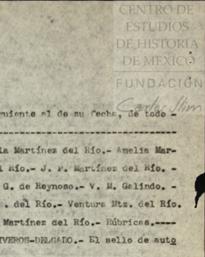 CENTRO DE
ESTUDIOS
DE HISTORIA
DE MÉXICO
FUNDACIÓN
Carlos Slim
guiente al de su fecha, de todo -
la Martínez del Río.- Amelia Mar-
l Río.- J. P. Martínez del Río. -
G. de Reynoso.- V. M. Galindo. -
. del Río.- Ventura Mtz. del Río.
Martínez del Río.- Rúbricas.----
IVEROS-DELGADO.- El sello de auto